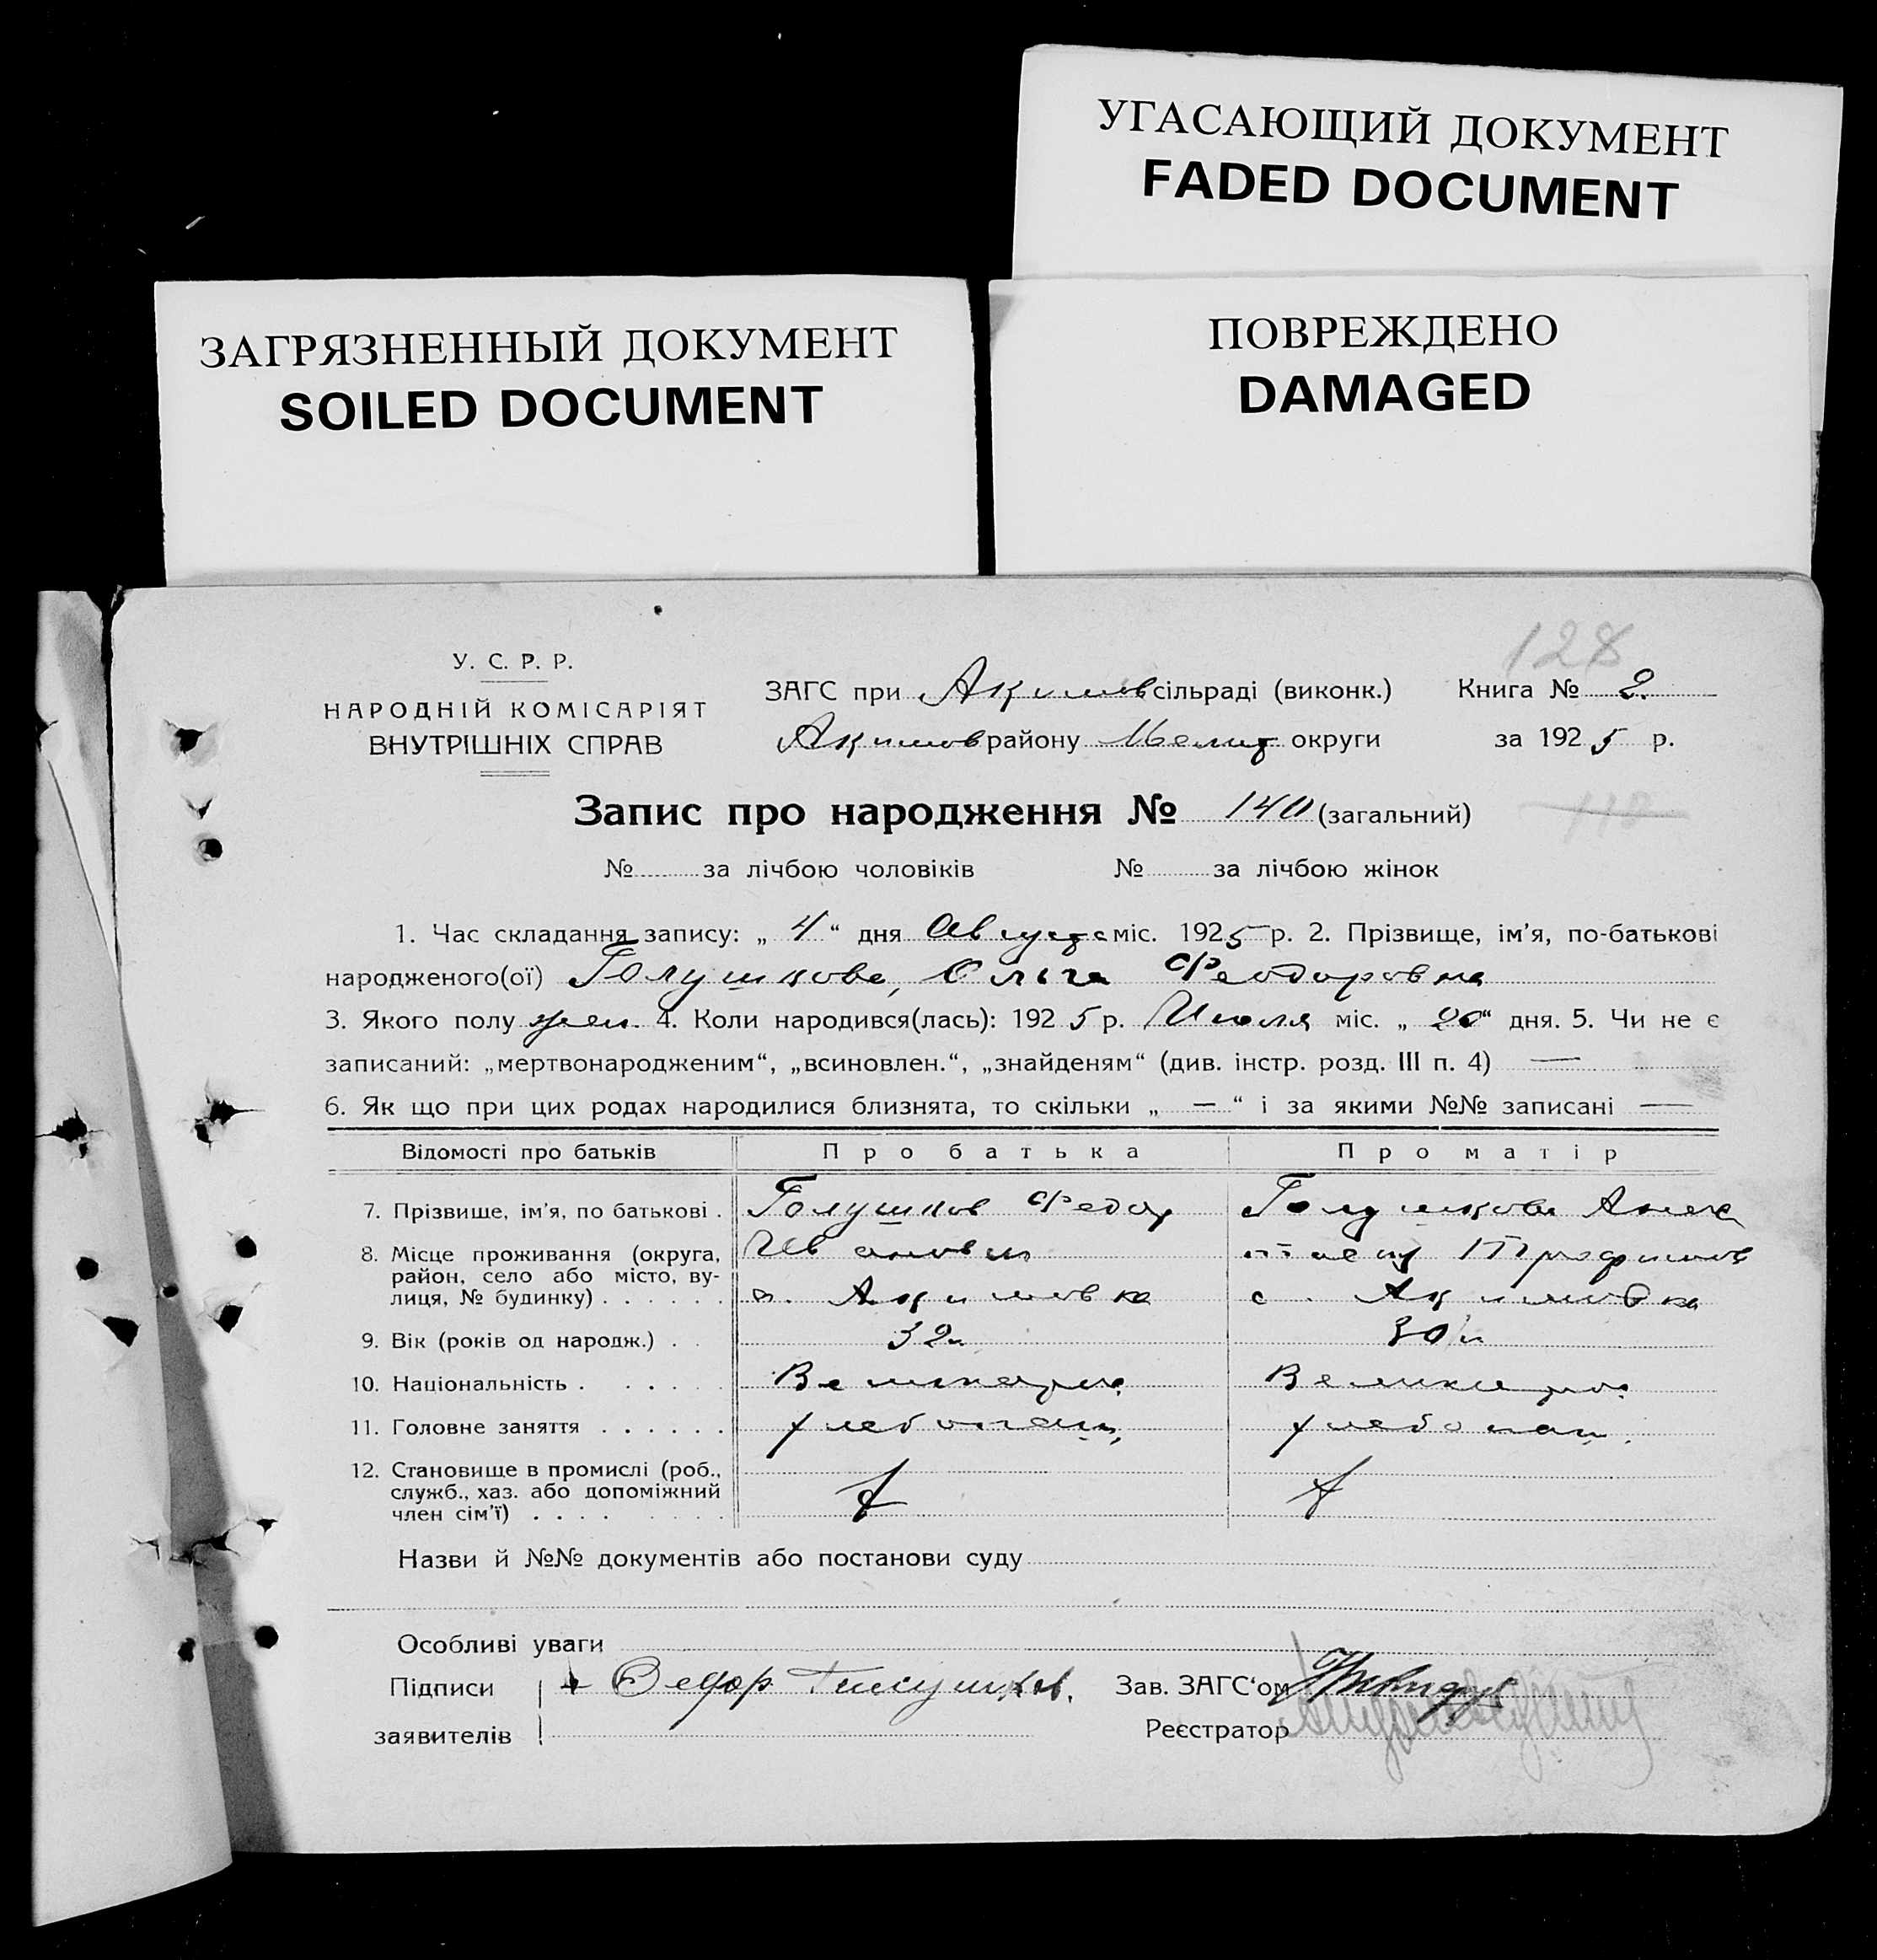 УГАСАЮЩИЙ ДОКУМЕНТ
FADED DOCUMENT
ЗАГРЯЗНЕННЫЙ ДОКУМЕНТ
SOILED DOCUMENT
ПОВРЕЖДЕНО
DAMAGED
128
У. С. Р. Р.
НАРОДНІЙ КОМІСАРІЯТ
ВНУТРІШНІХ СПРАВ
ЗАГС при Акимов сільраді (виконк.) Книга № 2.
Акимов району Мелит округи за 1925 р.
Запис про народження № 140 (загальний) 118
№ за лічбою чоловіків № за лічбою жінок
1. Час складання запису: „ 4 “ дня Августа міс. 1925 р. 2. Прізвище, ім’я, по-батькові
народженого(ої) Голушкова, Ольга Феодоровна
3. Якого полу жен. 4. Коли народився(лась): 1925 р. Июля міс. „ 20 “ дня. 5. Чи не є
записаний: „мертвонародженим“, „всиновлен.“, „знайденям“ (див. інстр. розд. III п. 4) —
6. Як що при цих родах народилися близнята, то скільки „ — “ і за якими №№ записані —
Відомості про батьків Про батька Про матір
7. Прізвище, ім’я, по батькові . Голушков Федор Голушкова
8. Місце проживання (округа, Иванович Трофимов
район, село або місто, ву-
лиця, № будинку) . . . . . . с. Акимовка с. Акимовка
9. Вік (років од народж.) . . 32 30
10. Національність . . . . . Великорос Великорос
11. Головне заняття . . . . . . хлебопаш. хлебопаш.
12. Становище в промислі (роб.,
служб., хаз. або допоміжний
член сім’ї) . . . .
Назви й №№ документів або постанови суду
Особливі уваги
Підписи + Федор Голушков. Зав. ЗАГС‘ом
заявителів Реєстратор